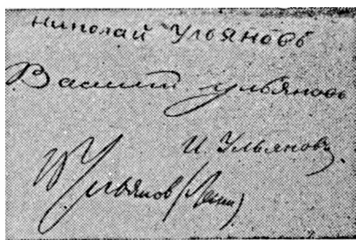 Николай Ульяновъ
Василий Ульяновъ
И. Ульяновъ.
В Ульянов (Ленин)